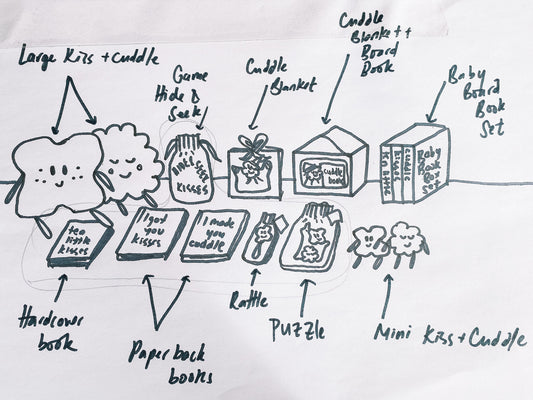 Large Kiss + Cuddle
Game
Hide &
Seek
Cuddle
Blanket
Cuddle
Blanket +
Board
Book
Baby
Board
Book
Set
KISSES
cuddle
book
cuddle
Baby
Book
Box
set
ten
little
kisses
I got
you
kisses
I made
you
cuddle
Hardcover
book
Paperback
books
Rattle
PUZZLE
Mini Kiss + Cuddle